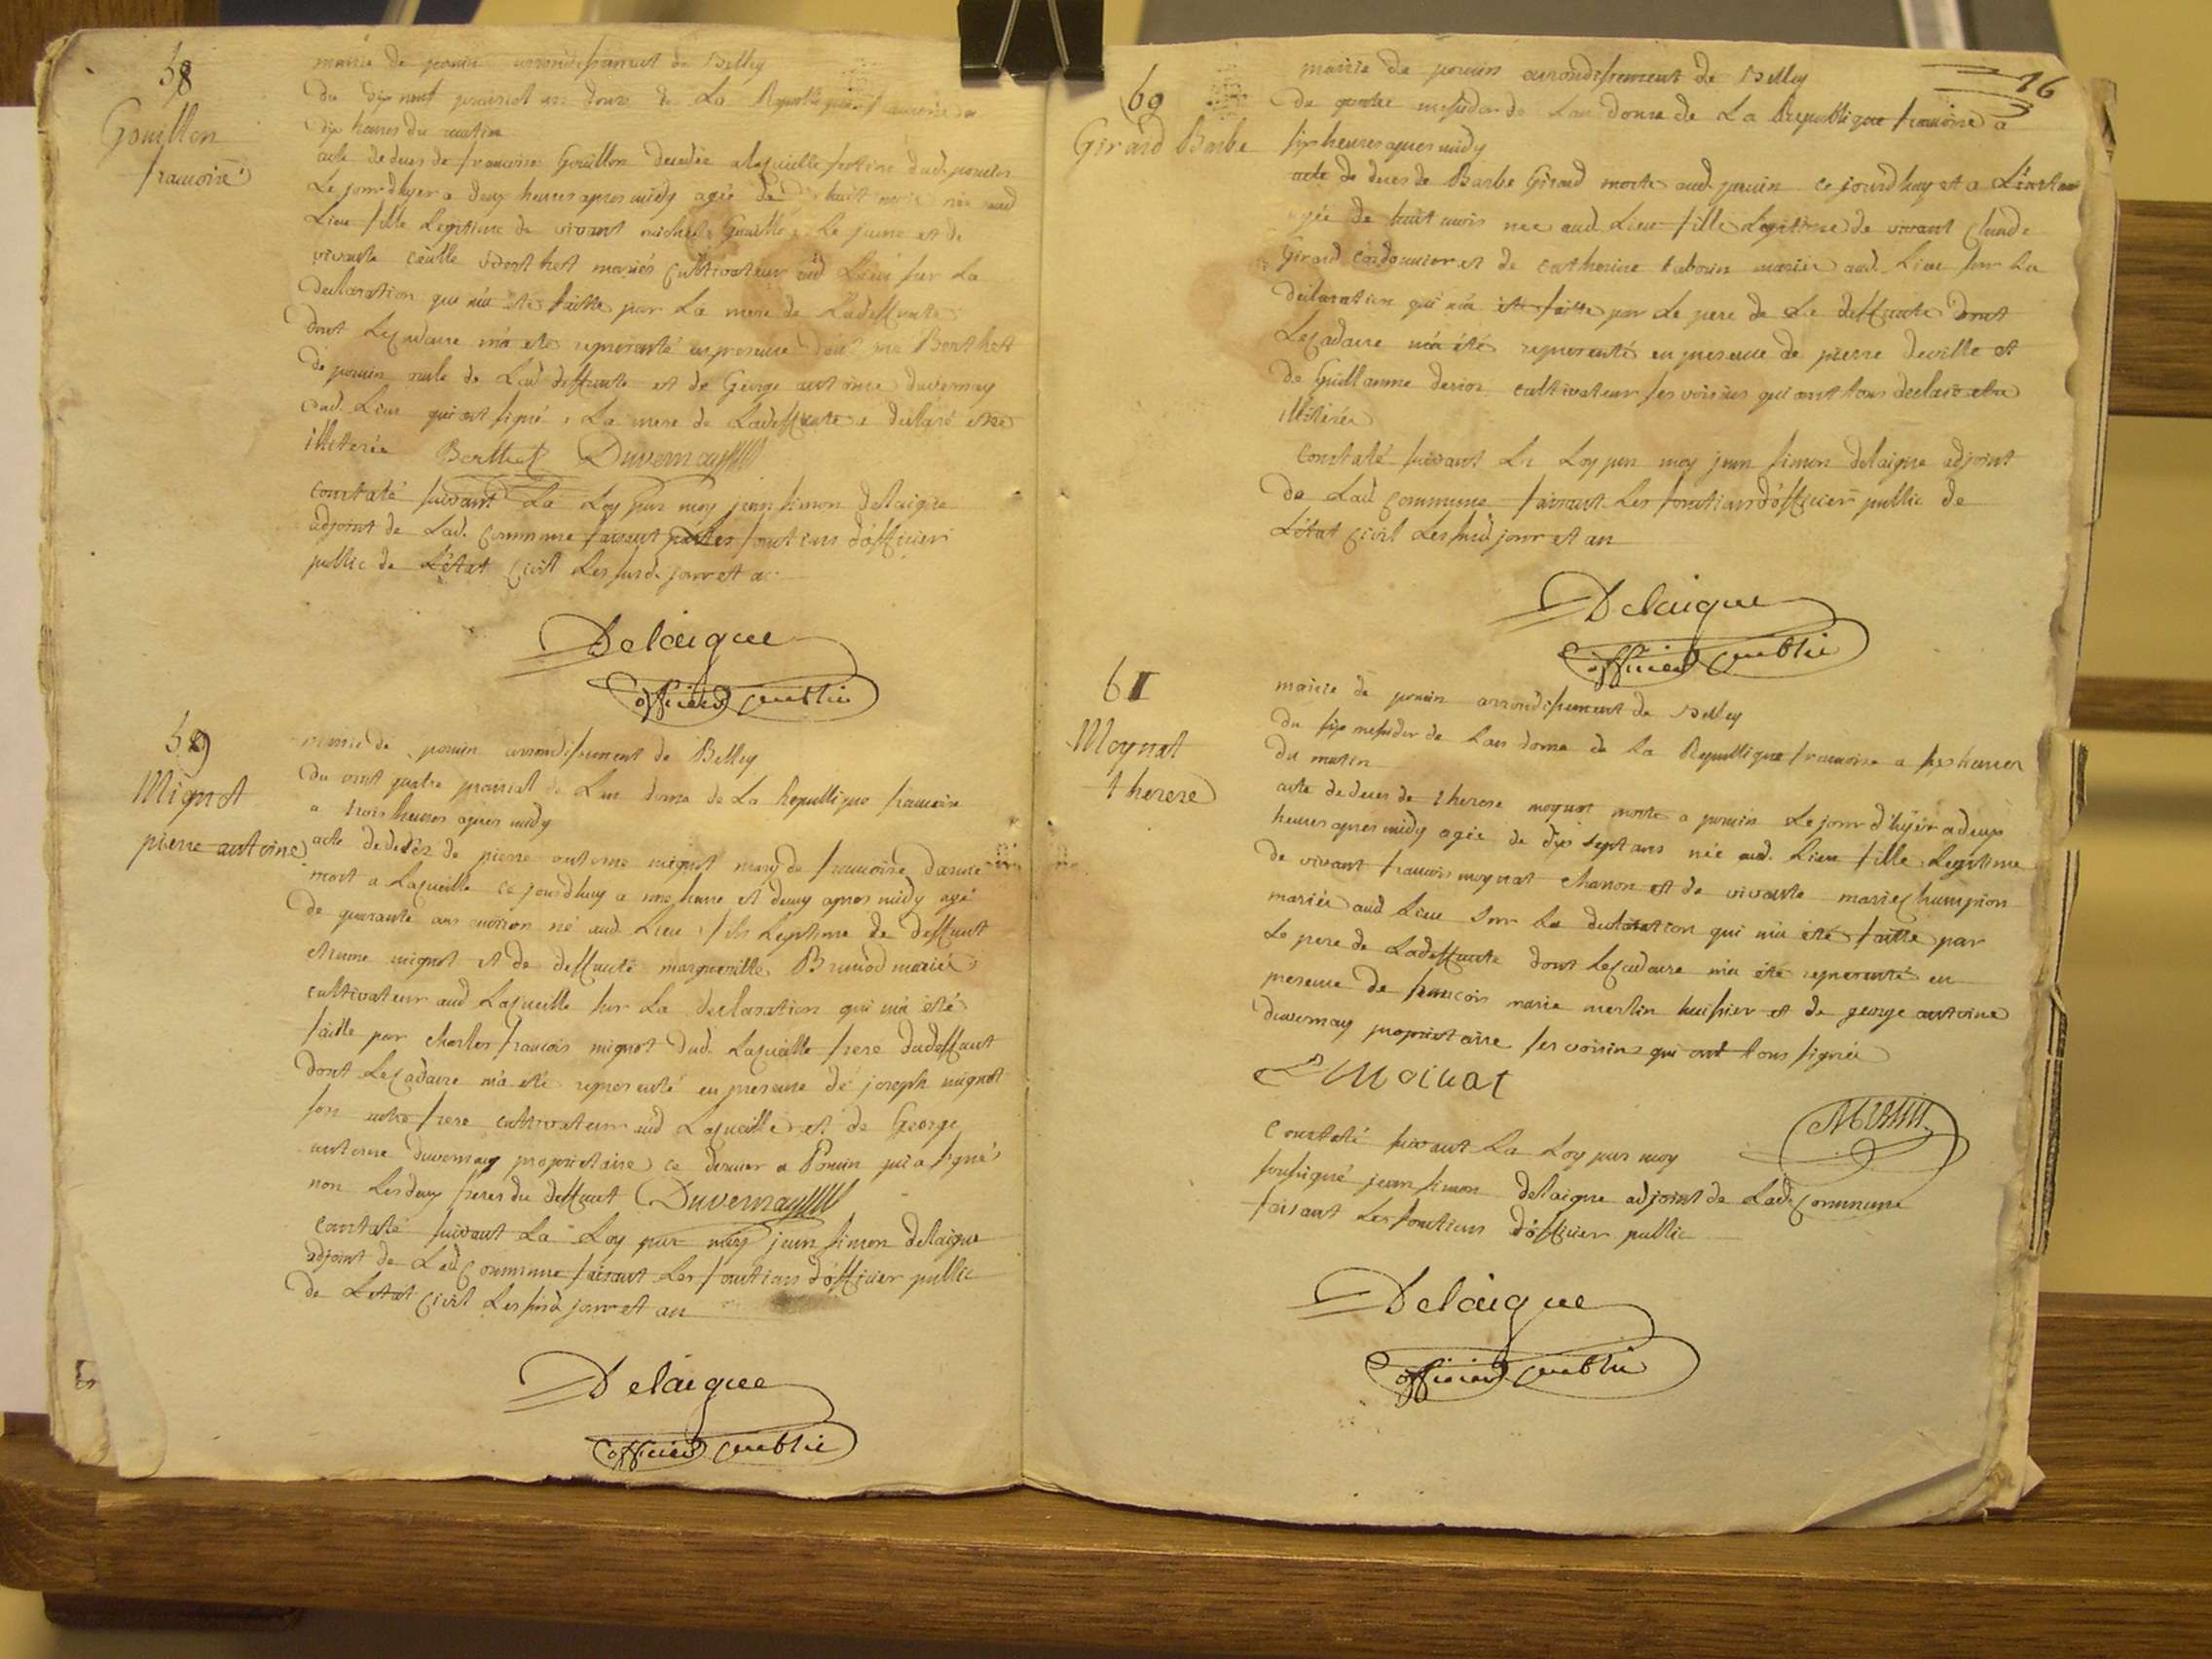 58
Gouillon
francoise
mairie de poncin arrondissement de Belley
du dix neuf prairial an douze de La Republique francoise a
dix heures du matin
acte de deces de francoise Gouillon decedée a Lqueille dud. poncin
Le jour d'hyer a deux heures apres midy agée de huit mois née aud
Lieu fille Legitime de vivant michel Gouillon Le jeune et de
vivante mariés cultivateur aud Lieu sur La
declaration qui ma été faitte par La mere de Ladeffunte
dont Lecadavre m'a eté representé en presence de Berthet
de poncin oncle de Lad deffunte et de George antoine duvernay
dud. Lieu qui ont signé, La mere de Ladeffunte a declaré etre
illiterée Berthet Duvernay
constaté suivant La Loy par moy jean simon delaigue
adjoint de Lad. Commune faisant Les fonctions d'officier
public de L'état Civil Les susd. jour et an
Delaigue
officier public
59
Mignot
pierre antoine
mairie de poncin arrondissement de Belley
du vint quatre prairial de Lan douze de La Republique francoise
a trois heures apres midy
acte de decéz de pierre antoine mignot mary de francoise
mort a Laqueille ce jourdhuy a une heure et demy apres midy agé
de quarante ans environ né aud. Lieu fils Legitime de deffunt
etienne mignot et de deffunte marguerite Brunod mariés
cultivateur aud Laqueille sur La declaration qui m'a été
faitte par charles francois mignot dud. Laqueille frere dudeffunt
dont Lecadavre m'a été representé en presence de joseph mignot
son autre frere cultivateur aud Laqueille et de George
antoine duvernay proprietaire ce dernier a Poncin qui a signé
non Lesdeux freres du deffunt Duvernay
Constaté suivant La Loy par moy jean simon delaigue
adjoint de Lad Commune faisant Les fonctions d'officier public
de Letat Civil Les susd jour et an
Delaigue
officier public
16
60
Girard Barbe
mairie de poncin arrondissement de Belley
du quatre messidor de Lan douze de La Republique francoise a
six heures apres midy
acte de deces de Barbe Girard morte aud. poncin ce jourdhuy et a L'instant
agée de huit mois née aud. Lieu fille Legitime de vivant Claude
Girard cordonnier et de catherine tabouin mariés aud. Lieu sur La
declaration qui m'a été faitte par Le pere de La deffunte dont
Lecadavre m'a été representé en presence de pierre deville et
de Guillaume cultivateur ses voisins qui ont tous declaré etre
illiterés
Constaté suivant La Loy par moy jean simon delaigue adjoint
de Lad Commune faisant Les fonctions d'officier public de
L'état Civil Les susd jour et an
Delaigue
officier public
61
Moynat
therese
mairie de poncin arrondissement de Belley
du six messidor de Lan douze de La Republique francoise a six heures
du matin
acte de deces de therese moynat morte a poncin Le jour d'hyer a deux
heures apres midy agée de dix sept ans née aud. Lieu fille Legitime
de vivant francois moynat charron et de vivante marie Champion
mariés aud Lieu Sur La declaration qui m'a été faitte par
Le pere de Ladeffunte dont Lecadavre m'a été representé en
presence de francois marie merlin huissier et de george antoine
duvernay proprietaire ses voisins qui ont tous signés
Moinat
Constaté suivant La Loy par moy
soussigné jean simon delaigue adjoint de Lad. Commune
faisant Les fonctions d'officier public
Delaigue
officier public